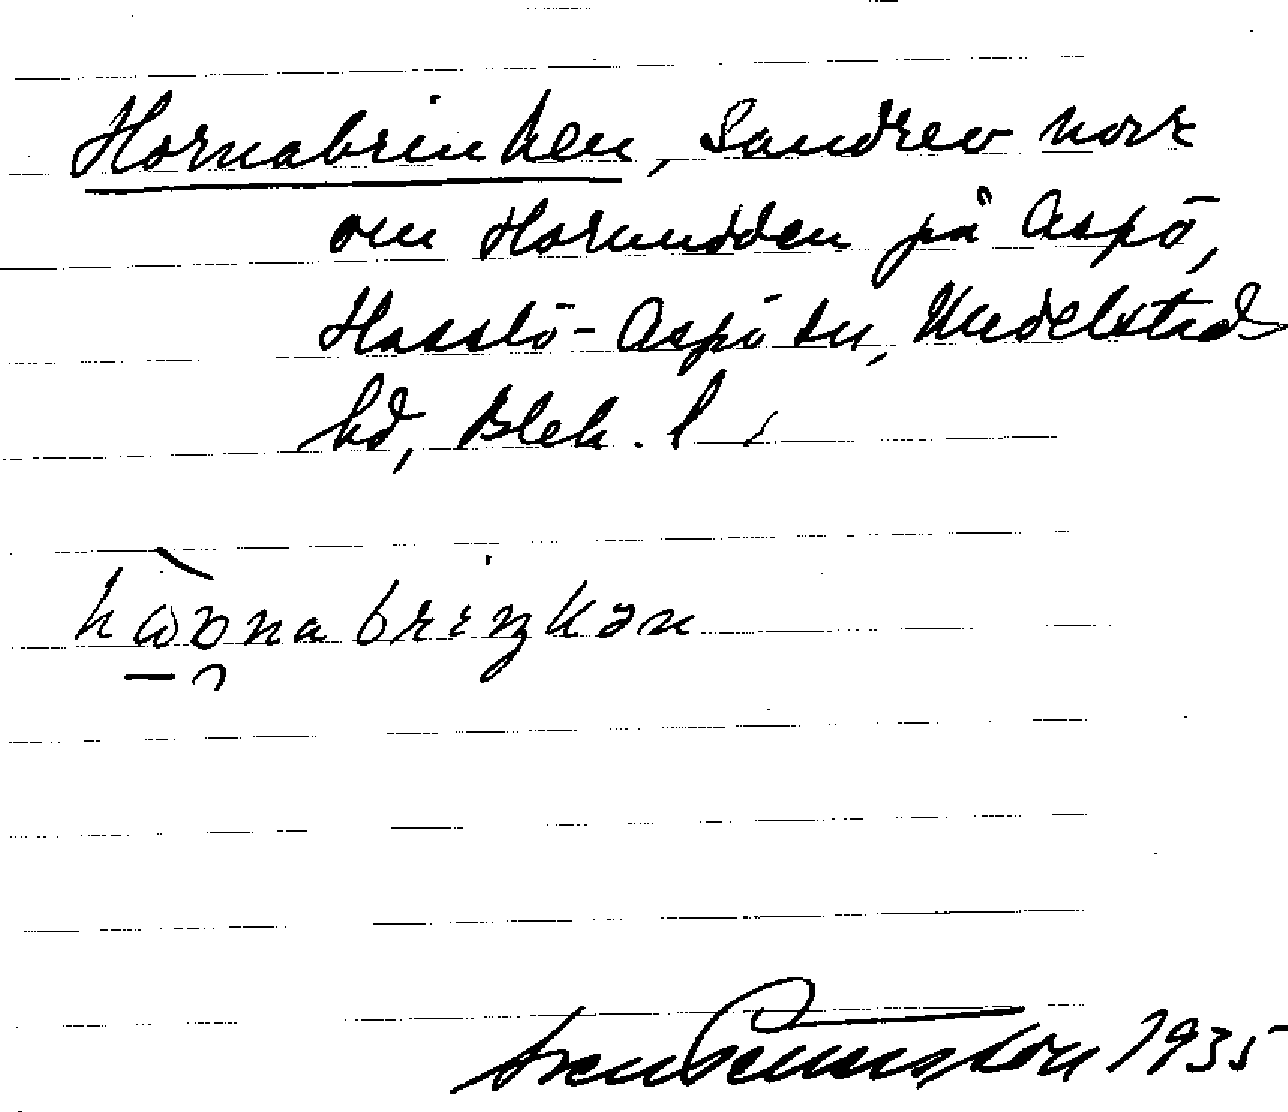 Hornabrinken, Sandrev norr
om Hornudden på Aspö,
Hasslö-Aspö sn, Medelstads
hd, Blek. l.
Sven Benson 1935